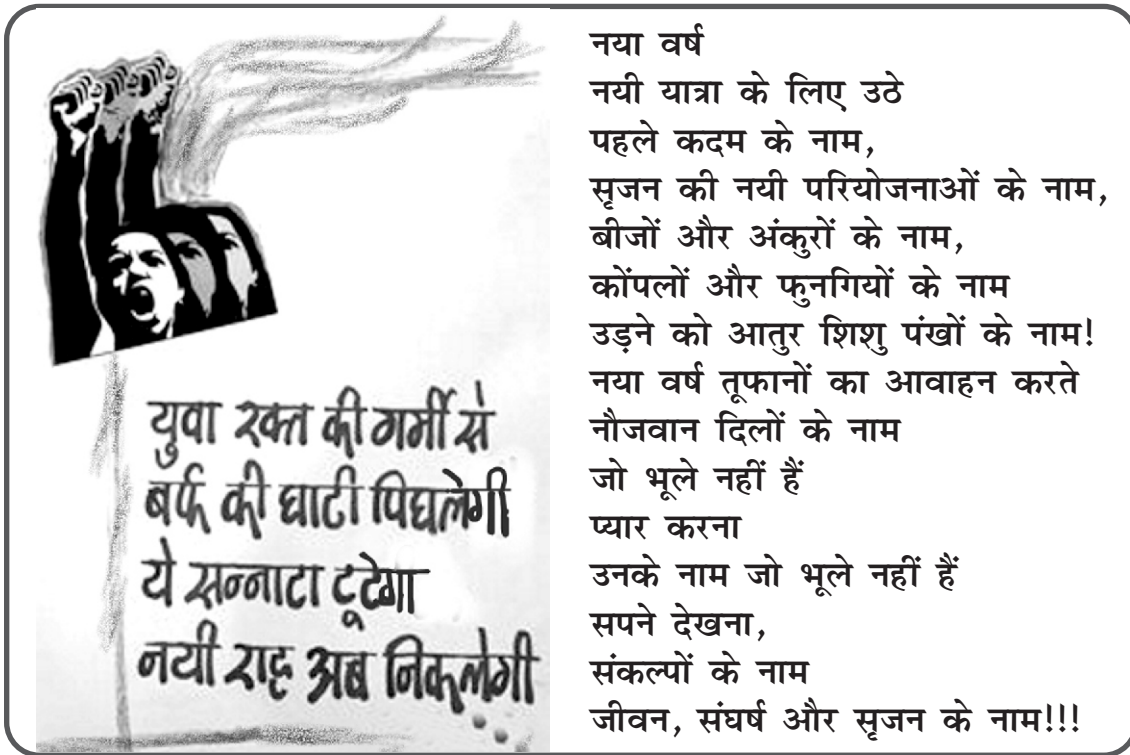 युवा रक्त की गर्मी से
बर्फ की घाटी पिघलेगी
ये सन्नाटा टूटेगा
नयी राह अब निकलेगी
नया वर्ष
नयी यात्रा के लिए उठे
पहले कदम के नाम,
सृजन की नयी परियोजनाओं के नाम,
बीजों और अंकुरों के नाम,
कोंपलों और फुनगियों के नाम
उड़ने को आतुर शिशु पंखों के नाम!
नया वर्ष तूफानों का आवाहन करते
नौजवान दिलों के नाम
जो भूले नहीं हैं
प्यार करना
उनके नाम जो भूले नहीं हैं
सपने देखना,
संकल्पों के नाम
जीवन, संघर्ष और सृजन के नाम!!!